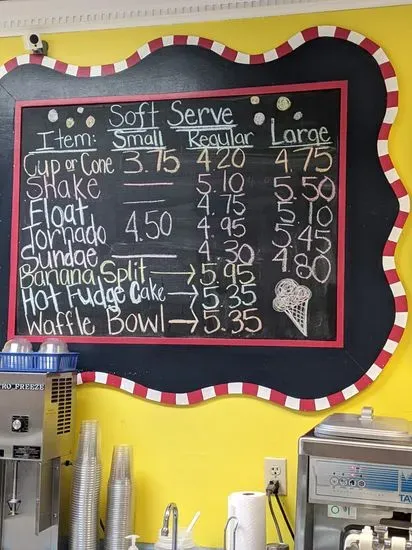 Soft Serve
Item: Small Regular Large
Cup or Cone 3.75 4.20 4.75
Shake — 5.10 5.50
Float — 4.75 5.10
Tornado 4.50 4.95 5.45
Sundae — 4.30 4.80
Banana Split → 5.95
Hot Fudge Cake → 5.35
Waffle Bowl → 5.35
TRO FREEZE
TAY